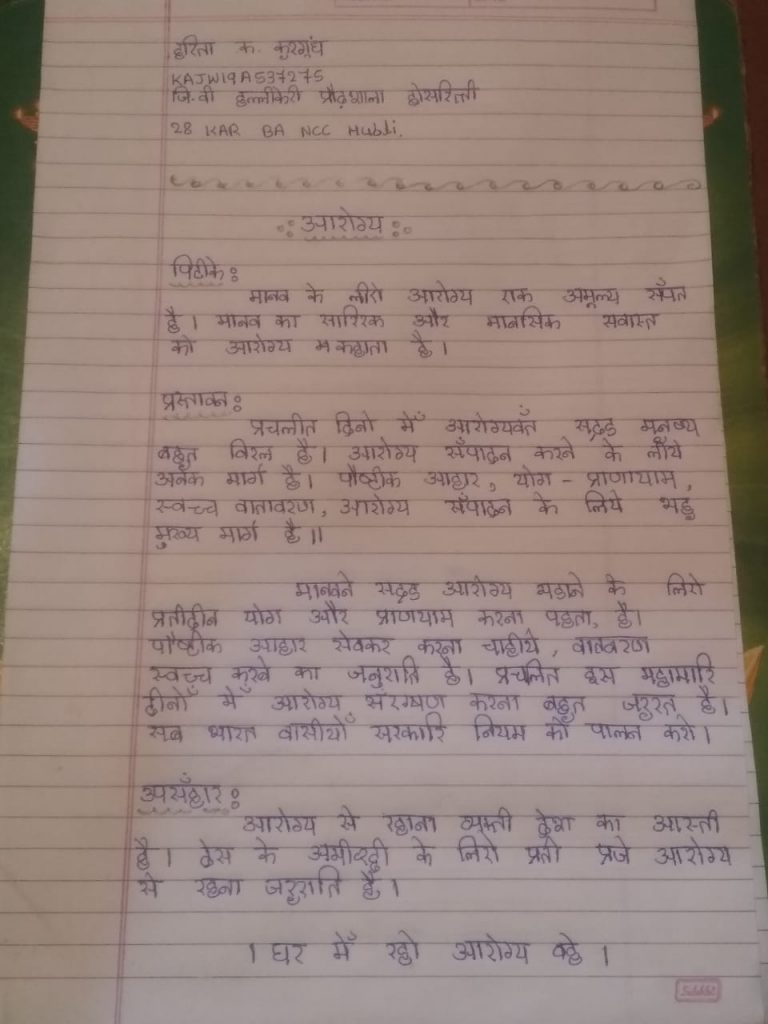 हरिता क. कुरगुंध
KAJW19A537275
जि.वी हल्लीकेरी प्रौढ़शाला होसरित्ती
28 KAR BA NCC Hubli.
आरोग्य
पिठीके:
मानव के लीऐ आरोग्य ऐक अमूल्य सँपत
है। मानव का सारिरक और मानसिक सवास्त
को आरोग्य म कहाता है।
प्रस्तावन:
प्रचलीत दिनो मेँ आरोग्यवँत सदृड मनुष्य
बहुत विरल है। आरोग्य सँपादन करने के लीये
अनेक मार्ग है। पौष्टीक आहार, योग - प्राणायाम,
स्वच्च वातावरण, आरोग्य सँपादन के लिये भहु
मुख्य मार्ग है॥
मानवने सदृड आरोग्य भडाने के लिऐ
प्रतीदीन योग और प्राणयाम करना पडता, है।
पौष्टीक आहार सेवकर करना चाहीये, वातवरण
स्वच्च कुरखे का जनुराति है। प्रचलित इस महामारि
दीनोँ मेँ आरोग्य सँरग्षण करना बहुत जरुरत है।
सब भारत वासीयोँ सरकारि नियम को पालन करो।
उपसँहार:
आरोग्य से रहाना व्यक्ती देश का आस्ती
है। देस के अभीरद्दी के लिऐ प्रती प्रजे आरोग्य
से रहना जरुराति है।
। घर मेँ रहो आरोग्य रहे।